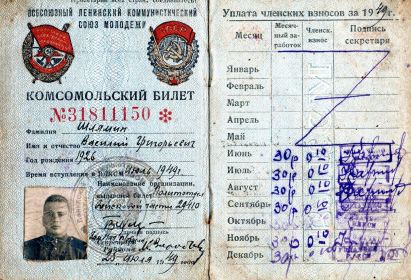 ВСЕСОЮЗНЫЙ ЛЕНИНСКИЙ КОММУНИСТИЧЕСКИЙ
СОЮЗ МОЛОДЕЖИ
КОМСОМОЛЬСКИЙ БИЛЕТ
№31811150
Фамилия Шлямин
Имя и отчество Василий Григорьевич
Год рождения 1926
Время вступления в ВЛКСМ июль 1944 г.
Наименование организации,
выдавшей билет Политотдел
войсковой части
25 июля 1949
Уплата членских взносов за 1949 г.
Месяц
Месячный заработок
Членск. взнос
Подпись секретаря
Январь
Февраль
Март
Апрель
Май
Июнь 30р 0 10
Июль 30р 0 10
Август 30р 0 10
Сентябрь 30р 0 10
Октябрь
Ноябрь 30р 0 10
Декабрь 30р 0 10